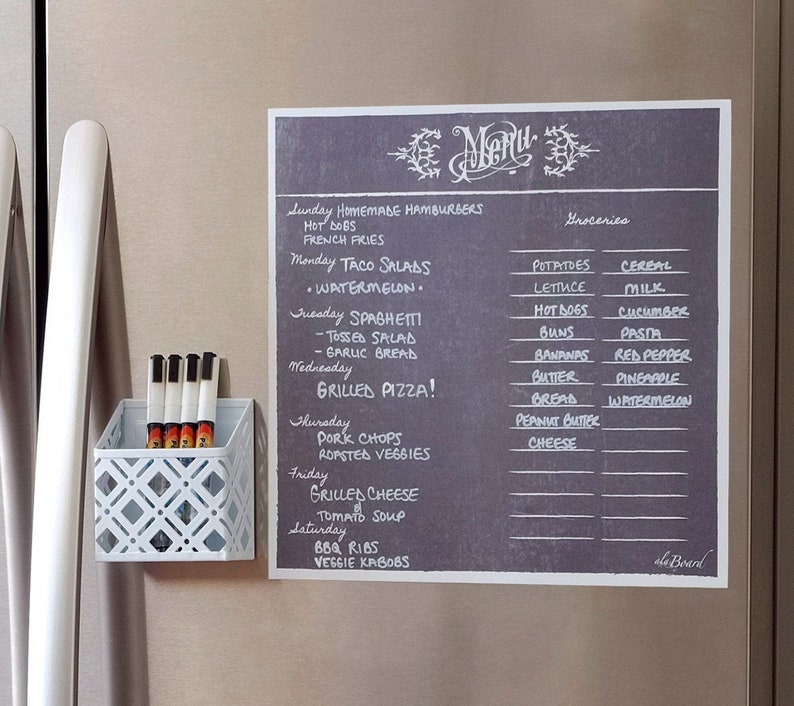 Menu
Sunday HOMEMADE HAMBURGERS
HOT DOGS
FRENCH FRIES
Monday TACO SALADS
• WATERMELON •
Tuesday SPAGHETTI
- TOSSED SALAD
- GARLIC BREAD
Wednesday
GRILLED PIZZA!
Thursday
PORK CHOPS
ROASTED VEGGIES
Friday
GRILLED CHEESE
&
TOMATO SOUP
Saturday
BBQ RIBS
VEGGIE KABOBS
Groceries
POTATOES
LETTUCE
HOTDOGS
BUNS
BANANAS
BUTTER
BREAD
PEANUT BUTTER
CHEESE
CEREAL
MILK
CUCUMBER
PASTA
RED PEPPER
PINEAPPLE
WATERMELON
àlaBoard